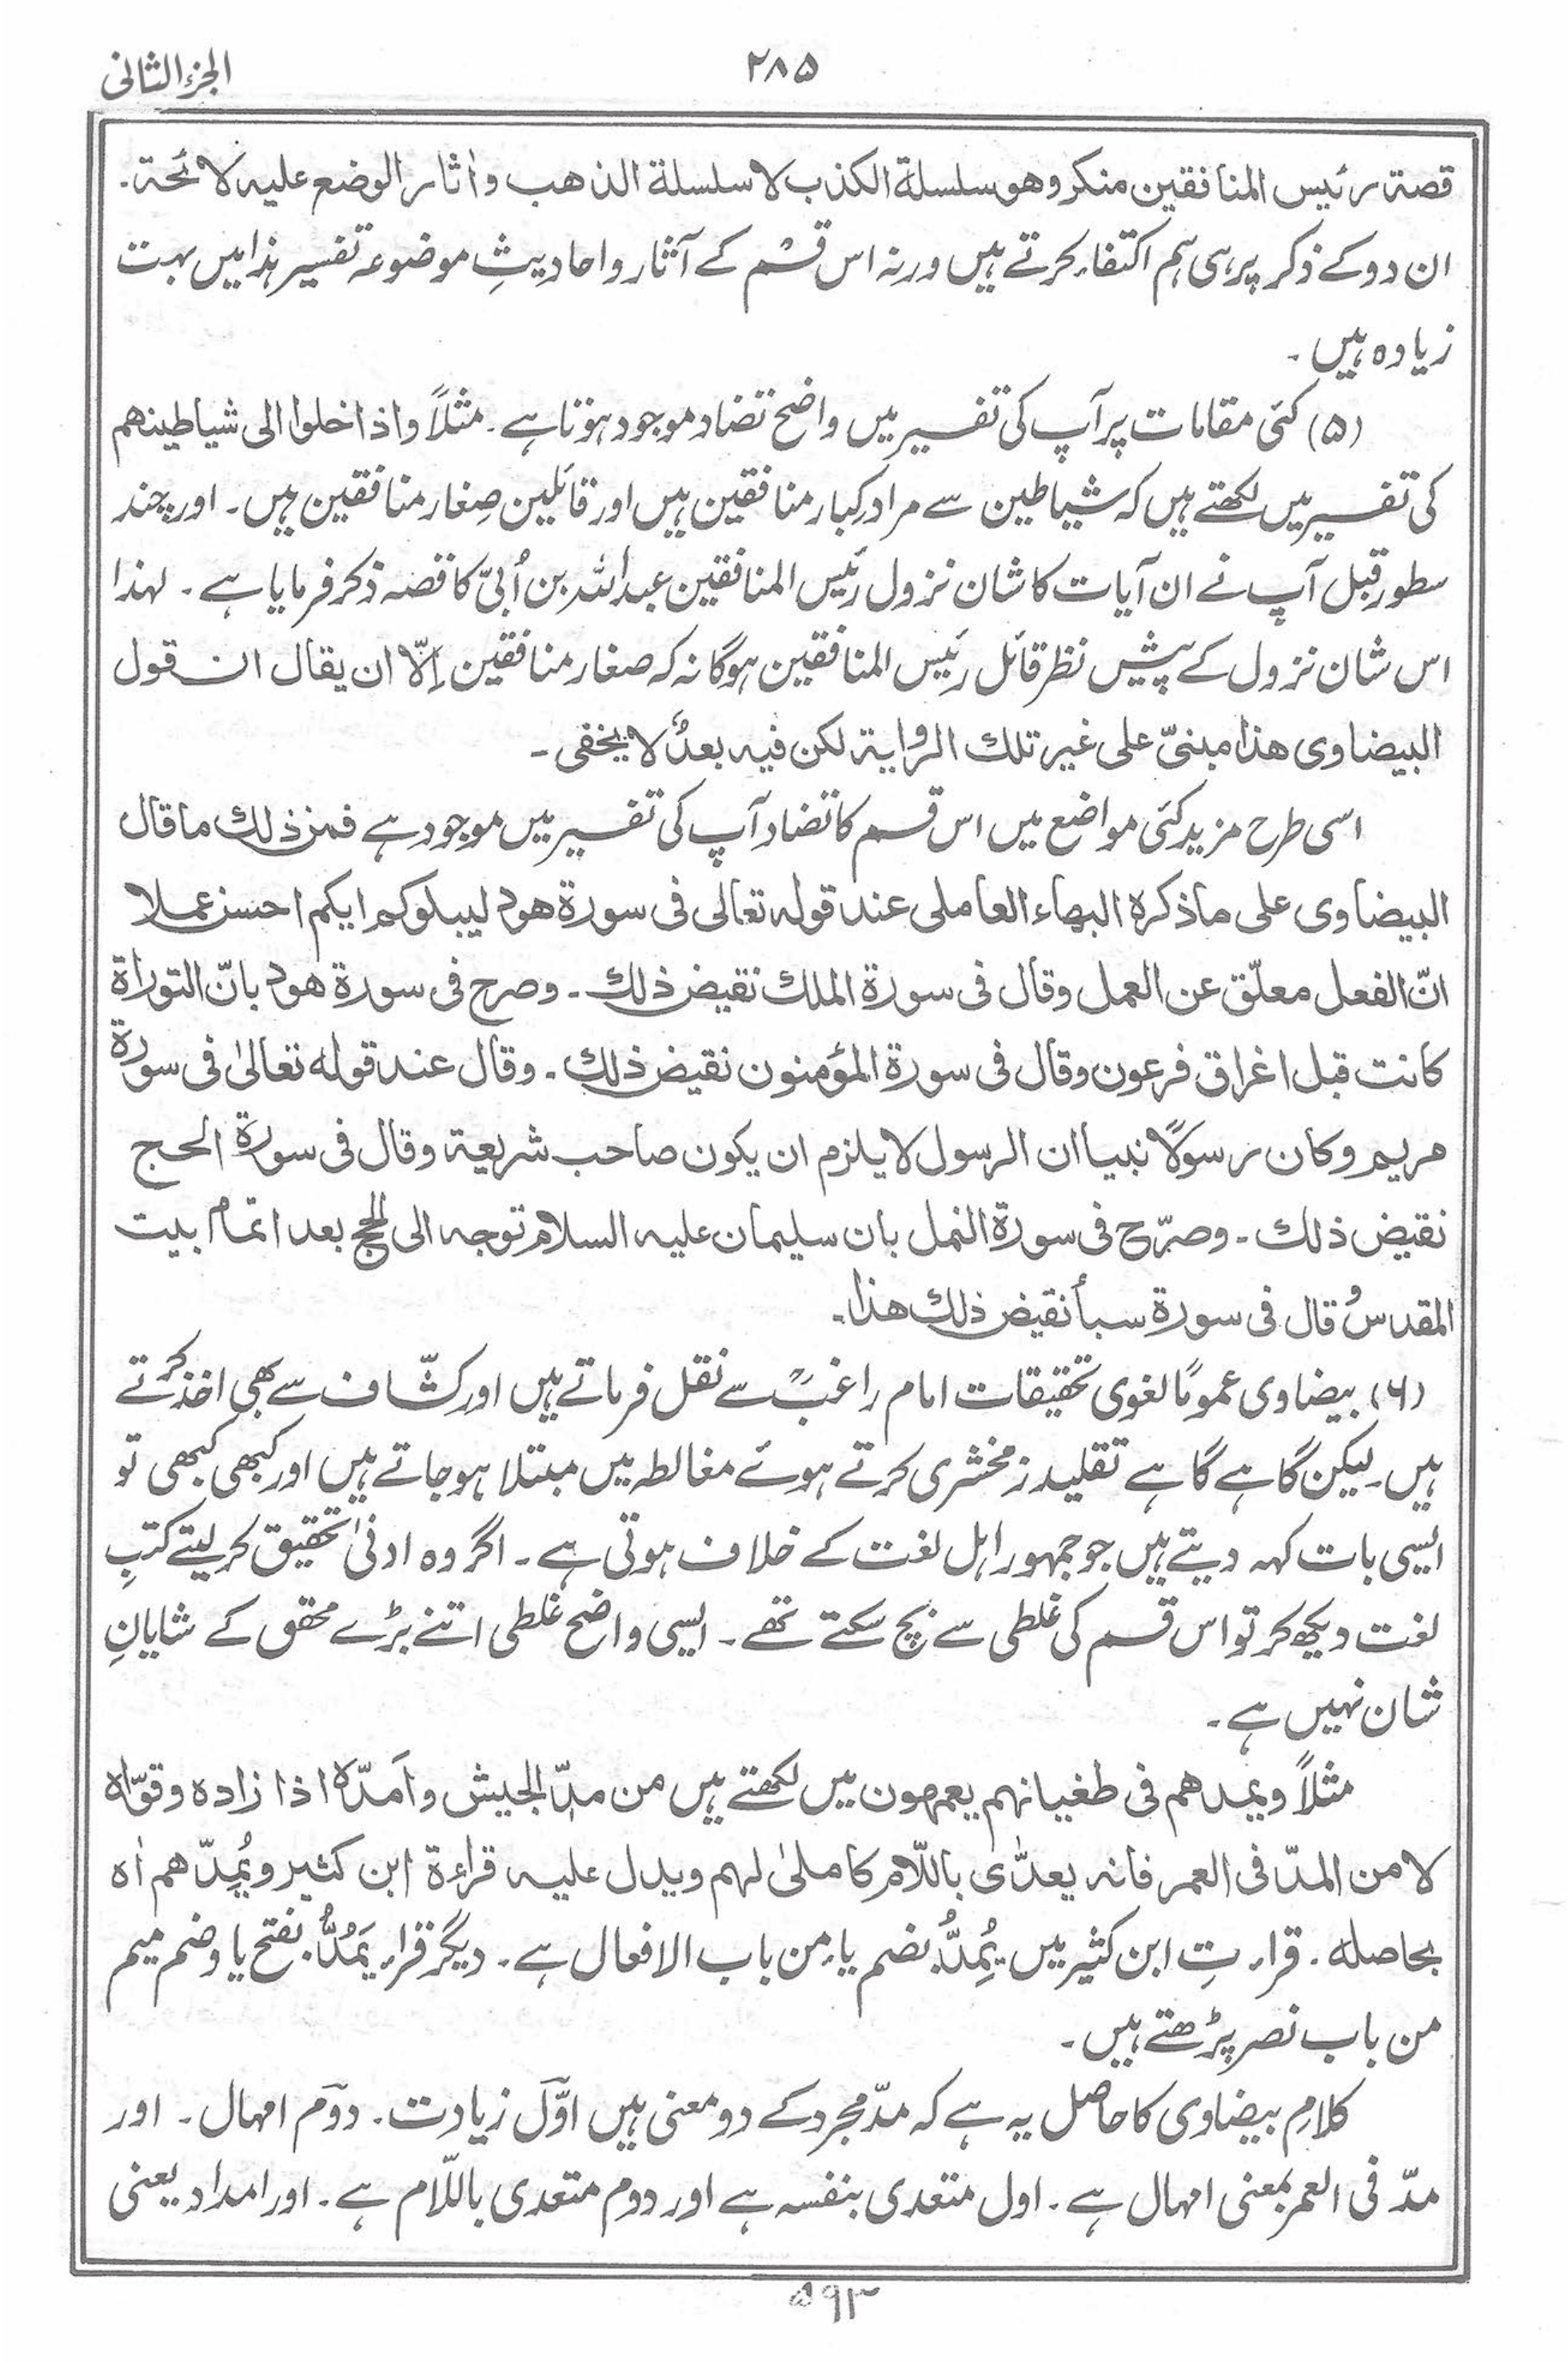 الجزء الثانی
۲۸۵
قصة رئیس المنافقین منکر وھو سلسلة الکذب لا سلسلة الذھب واٰثار الوضع علیہ لائحة۔
ان دو کے ذکر پر ہی ہم اکتفاء کرتے ہیں ورنہ اس قسم کے آثار و احادیثِ موضوعہ تفسیر ہذا میں بہت
زیادہ ہیں۔
(۵) کئی مقامات پر آپ کی تفسیر میں واضح تضاد موجود ہوتا ہے۔ مثلاً واذا خلوا الی شیاطینهم
کی تفسیر میں لکھتے ہیں کہ شیاطین سے مراد کبار منافقین ہیں اور قائلین صِغار منافقین ہیں۔ اور چند
سطور قبل آپ نے ان آیات کا شان نزول رئیس المنافقین عبداللہ بن اُبیّ کا قصہ ذکر فرمایا ہے۔ لہذا
اس شان نزول کے پیش نظر قائل رئیس المنافقین ہوگا نہ کہ صغار منافقین اِلّا ان یقال ان قول
البیضاوی ھذا مبنیّ علی غیر تلك الروایة لکن فیہ بعدٌ لا یخفی۔
اسی طرح مزید کئی مواضع میں اس قسم کا تضاد آپ کی تفسیر میں موجود ہے فمن ذلك ما قال
البیضاوی علی ما ذکرہ البهاء العاملی عند قوله تعالی فی سورة ھود لیبلوکم ایکم احسن عملا
انّ الفعل معلّق عن العمل وقال فی سورة الملك نقیض ذلك۔ وصرح فی سورة ھود بانّ التوراة
کانت قبل اغراق فرعون وقال فی سورة المؤمنون نقیض ذلك۔ وقال عند قوله تعالیٰ فی سورة
مریم وکان رسولًا نبیا ان الرسول لا یلزم ان یکون صاحب شریعة وقال فی سورة الحج
نقیض ذلك۔ وصرّح فی سورة النمل بان سلیمان علیہ السلام توجہ الی الحج بعد اتمام بیت
المقدس وقال فی سورة سبأ نقیض ذلك ھذا۔
(۶) بیضاوی عمومًا لغوی تحقیقات امام راغبؒ سے نقل فرماتے ہیں اور کشّاف سے بھی اخذ کرتے
ہیں۔ لیکن گاہے گاہے تقلید زمخشری کرتے ہوئے مغالطہ میں مبتلا ہوجاتے ہیں اور کبھی کبھی تو
ایسی بات کہہ دیتے ہیں جو جمہور اہل لغت کے خلاف ہوتی ہے۔ اگر وہ ادنیٰ تحقیق کرلیتے کتبِ
لغت دیکھ کر تو اس قسم کی غلطی سے بچ سکتے تھے۔ ایسی واضح غلطی اتنے بڑے محقق کے شایانِ
شان نہیں ہے۔
مثلاً ویمدھم فی طغیانہم یعمہون میں لکھتے ہیں من مدّ الجیش وأمدّہ اذا زادہ وقوّاہ
لا من المدّ فی العمر فانہ یعدّٰی باللّام کاملیٰ لہم ویدل علیہ قراءة ابن کثیر ویُمِدّھم اٰہ
بحاصلہ۔ قراءتِ ابن کثیر میں یُمِدُّ بضم یاء من باب الافعال ہے۔ دیگر قراء یَمُدُّ بفتح یا وضم میم
من باب نصر پڑھتے ہیں۔
کلامِ بیضاوی کا حاصل یہ ہے کہ مدّ مجرد کے دو معنی ہیں اوّل زیادت۔ دوم امہال۔ اور
مدّ فی العمر بمعنی امہال ہے۔ اول متعدی بنفسہ ہے اور دوم متعدی باللّام ہے۔ اور امداد یعنی
۵۹۳